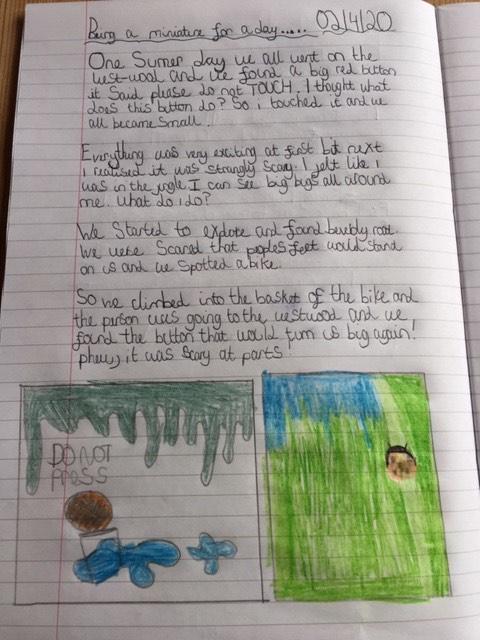 Being a miniature for a day..... 02/4/20
One Sumer day we all went on the
west-wood and we found a big red button
it Said please do not TOUCH. I thought what
does this button do? So i touched it and we
all became small.
Everything was very exciting at first bit next
I realised it was strangly scary. I felt like I
was in the jungle I can see big bugs all around
me. What do i do?
We Started to explore and found beverly road.
We were Scared that peoples feet would stand
on us and we spotted a bike.
So we climbed into the basket of the bike and
the person was going to the westwood and we
found the button that would turn us big again!
phew, it was scary at parts!
DO NOT
PRESS